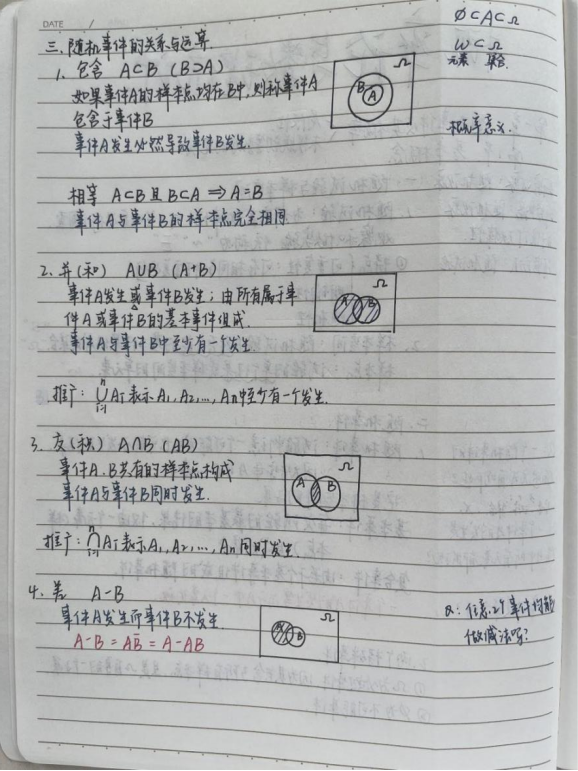 DATE /
∅⊂A⊂Ω
三. 随机事件的关系与运算.
1. 包含 A⊂B (B⊃A)
Ω
B A
ω⊂Ω
元素 集合
如果事件A的样本点均在B中, 则称事件A
包含于事件B
事件A发生必然导致事件B发生.
概率意义.
相等 A⊂B且B⊂A ⇒ A=B
事件A与事件B的样本点完全相同
2. 并(和) A∪B (A+B)
事件A发生或事件B发生; 由所有属于事
件A或事件B的基本事件组成.
事件A与事件B中至少有一个发生
Ω
A B
推广: ⋃ⁿᵢ₌₁Aᵢ 表示A₁, A₂, ..., Aₙ中至少有一个发生.
3. 交(积) A∩B (AB)
事件A.B共有的样本点构成
事件A与事件B同时发生.
Ω
A B
推广: ⋂ⁿᵢ₌₁Aᵢ 表示A₁, A₂, ..., Aₙ同时发生.
4. 差 A-B
事件A发生而事件B不发生
A-B = AB̅ = A-AB
Ω
A B
Q: 任意2个事件均能
做减法吗?